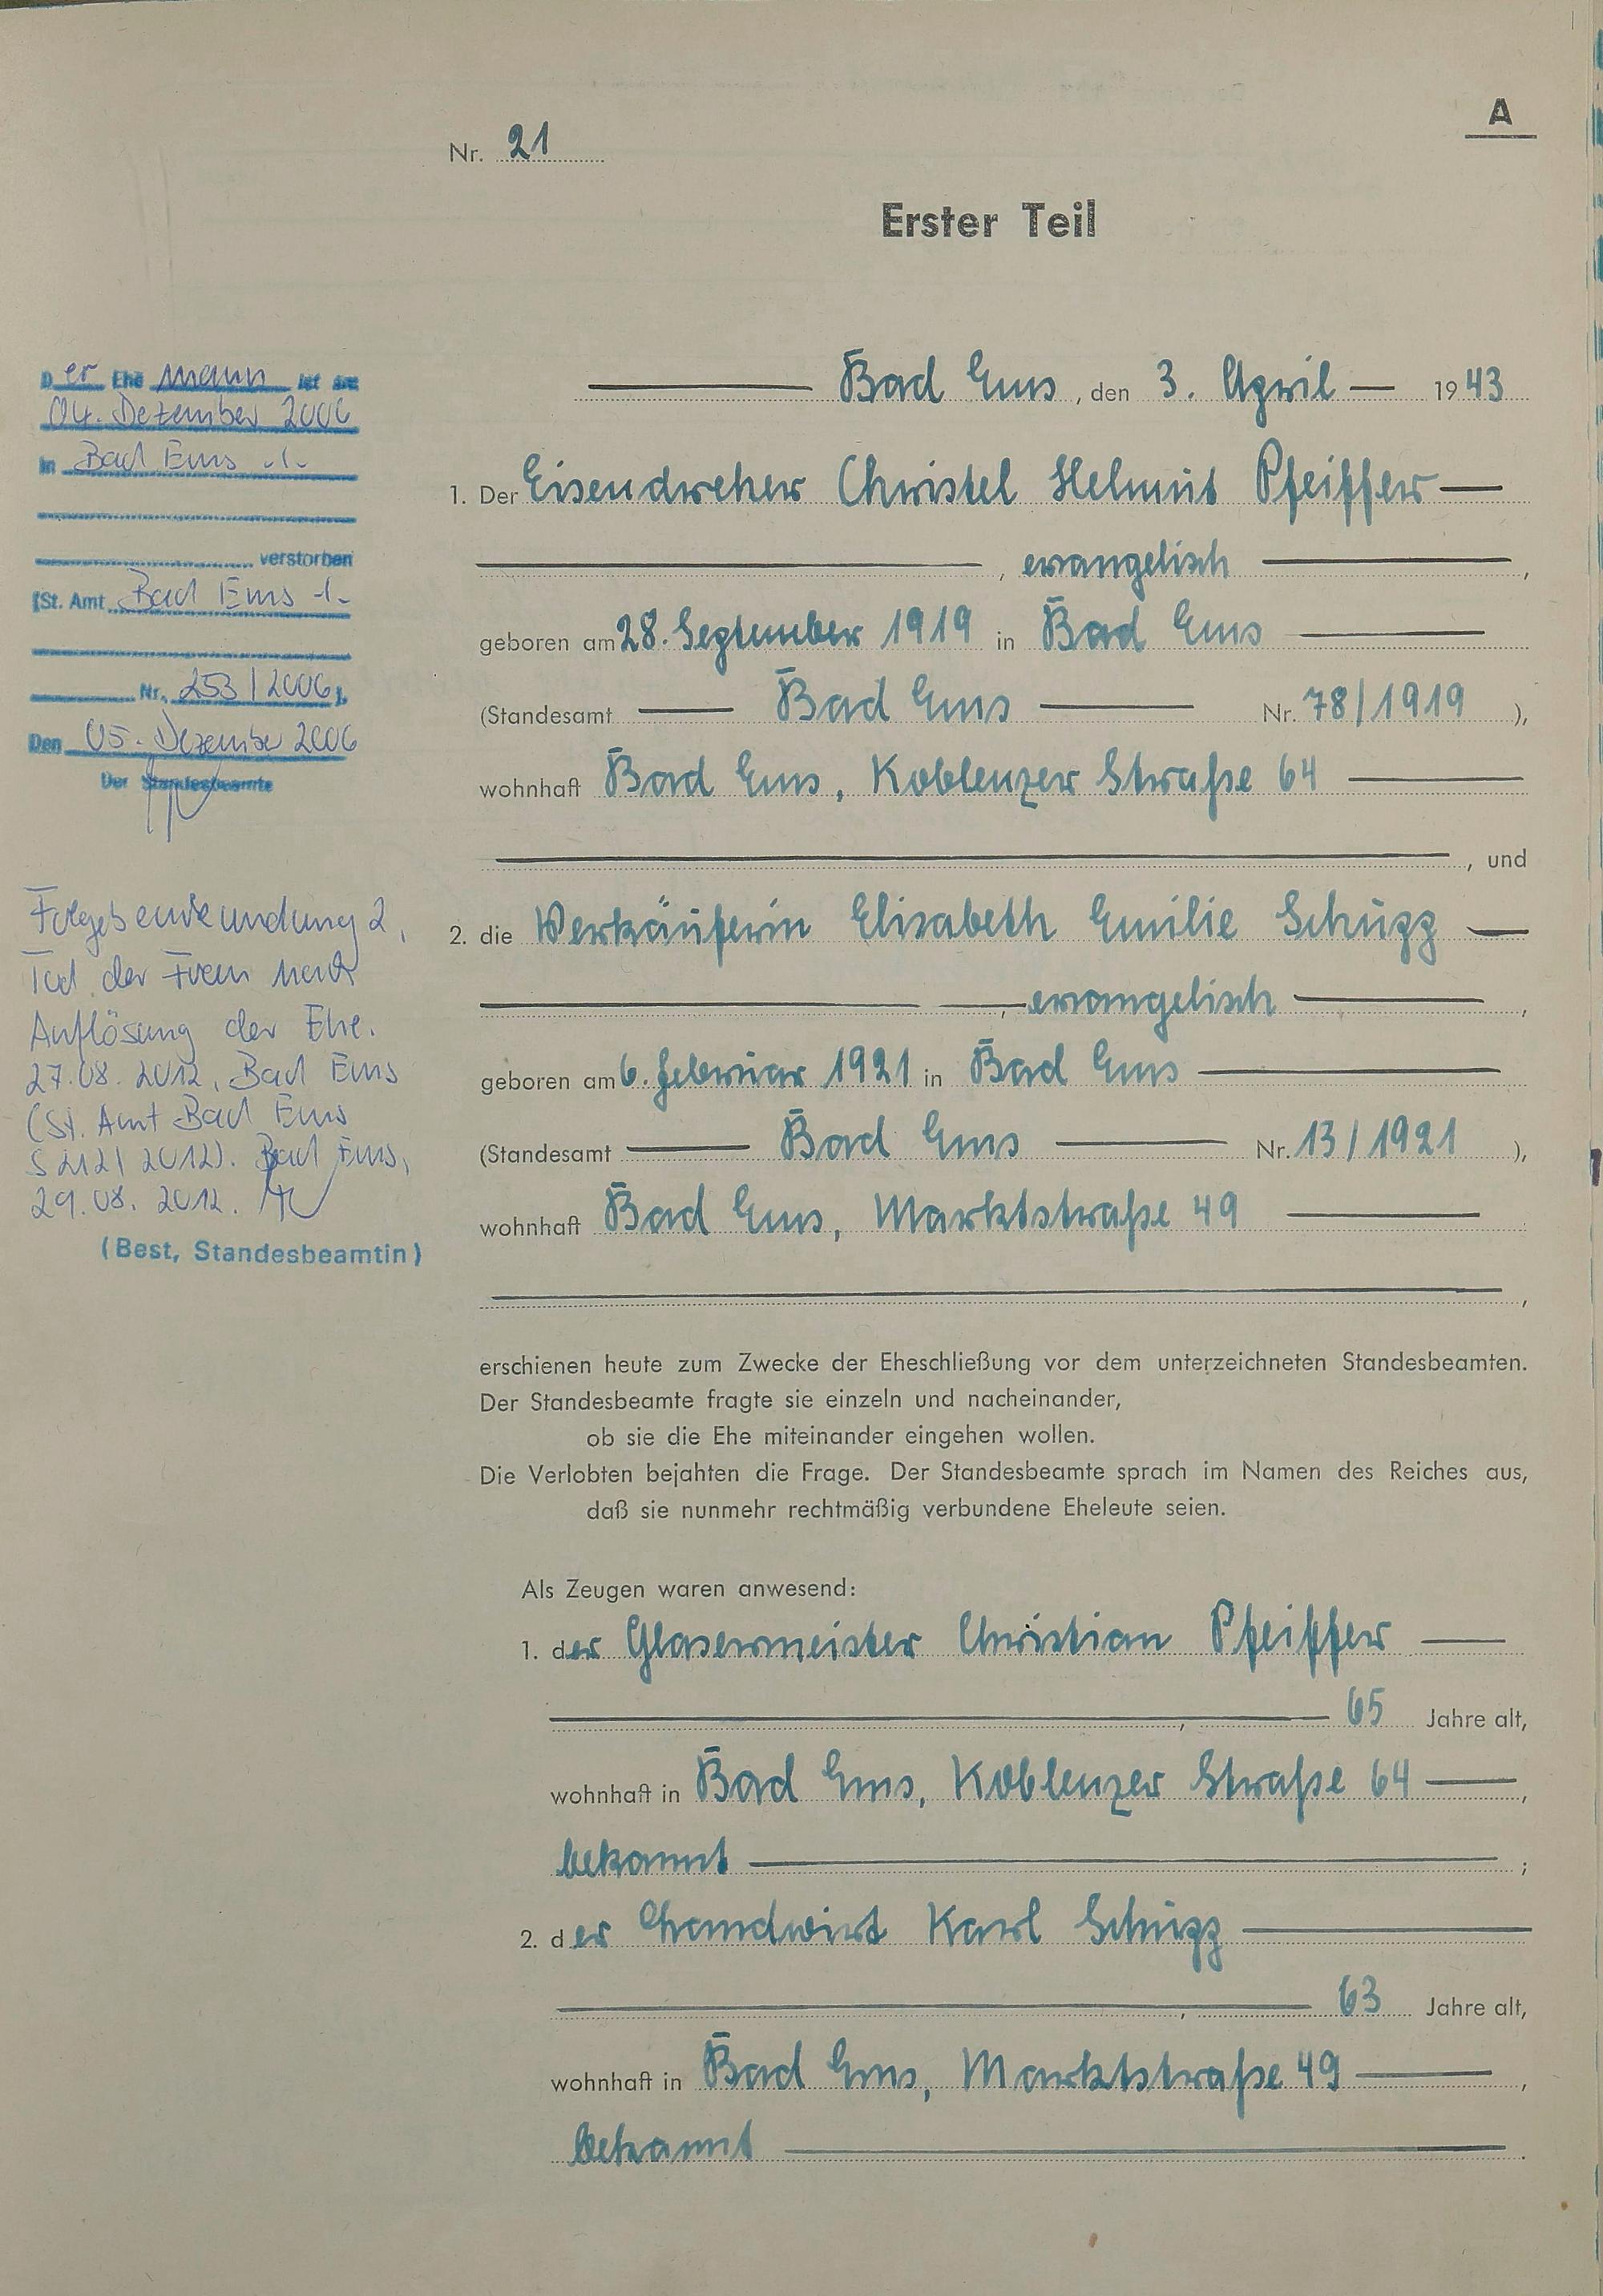 A
Nr. 21
Erster Teil
Bad Ems, den 3. April 1943
1. Der Eisendreher Christel Helmut Pfeiffer
, evangelisch ,
geboren am 28. September 1919 in Bad Ems
(Standesamt Bad Ems Nr. 78/1919 ),
wohnhaft Bad Ems, Koblenzer Straße 64
, und
2. die Verkäuferin Elisabeth Emilie Schupp
, evangelisch ,
geboren am 6. Februar 1921 in Bad Ems
(Standesamt Bad Ems Nr. 13/1921 ),
wohnhaft Bad Ems, Marktstraße 49
,
erschienen heute zum Zwecke der Eheschließung vor dem unterzeichneten Standesbeamten.
Der Standesbeamte fragte sie einzeln und nacheinander,
ob sie die Ehe miteinander eingehen wollen.
Die Verlobten bejahten die Frage. Der Standesbeamte sprach im Namen des Reiches aus,
daß sie nunmehr rechtmäßig verbundene Eheleute seien.
Als Zeugen waren anwesend:
1. der Glasermeister Christian Pfeiffer
, 65 Jahre alt,
wohnhaft in Bad Ems, Koblenzer Straße 64 ,
bekannt ;
2. der Landwirt Karl Schupp
, 63 Jahre alt,
wohnhaft in Bad Ems, Marktstraße 49 ,
bekannt .
Der Ehemann ist am
04. Dezember 2006
in Bad Ems -/-
verstorben
(St. Amt Bad Ems -/-
Nr. 253/2006 ).
Den 05. Dezember 2006
Der Standesbeamte
Folgebeurkundung 2,
Tod der Frau nach
Auflösung der Ehe.
27.08.2012, Bad Ems
(St. Amt Bad Ems
S 212/2012). Bad Ems,
29.08.2012.
(Best, Standesbeamtin)